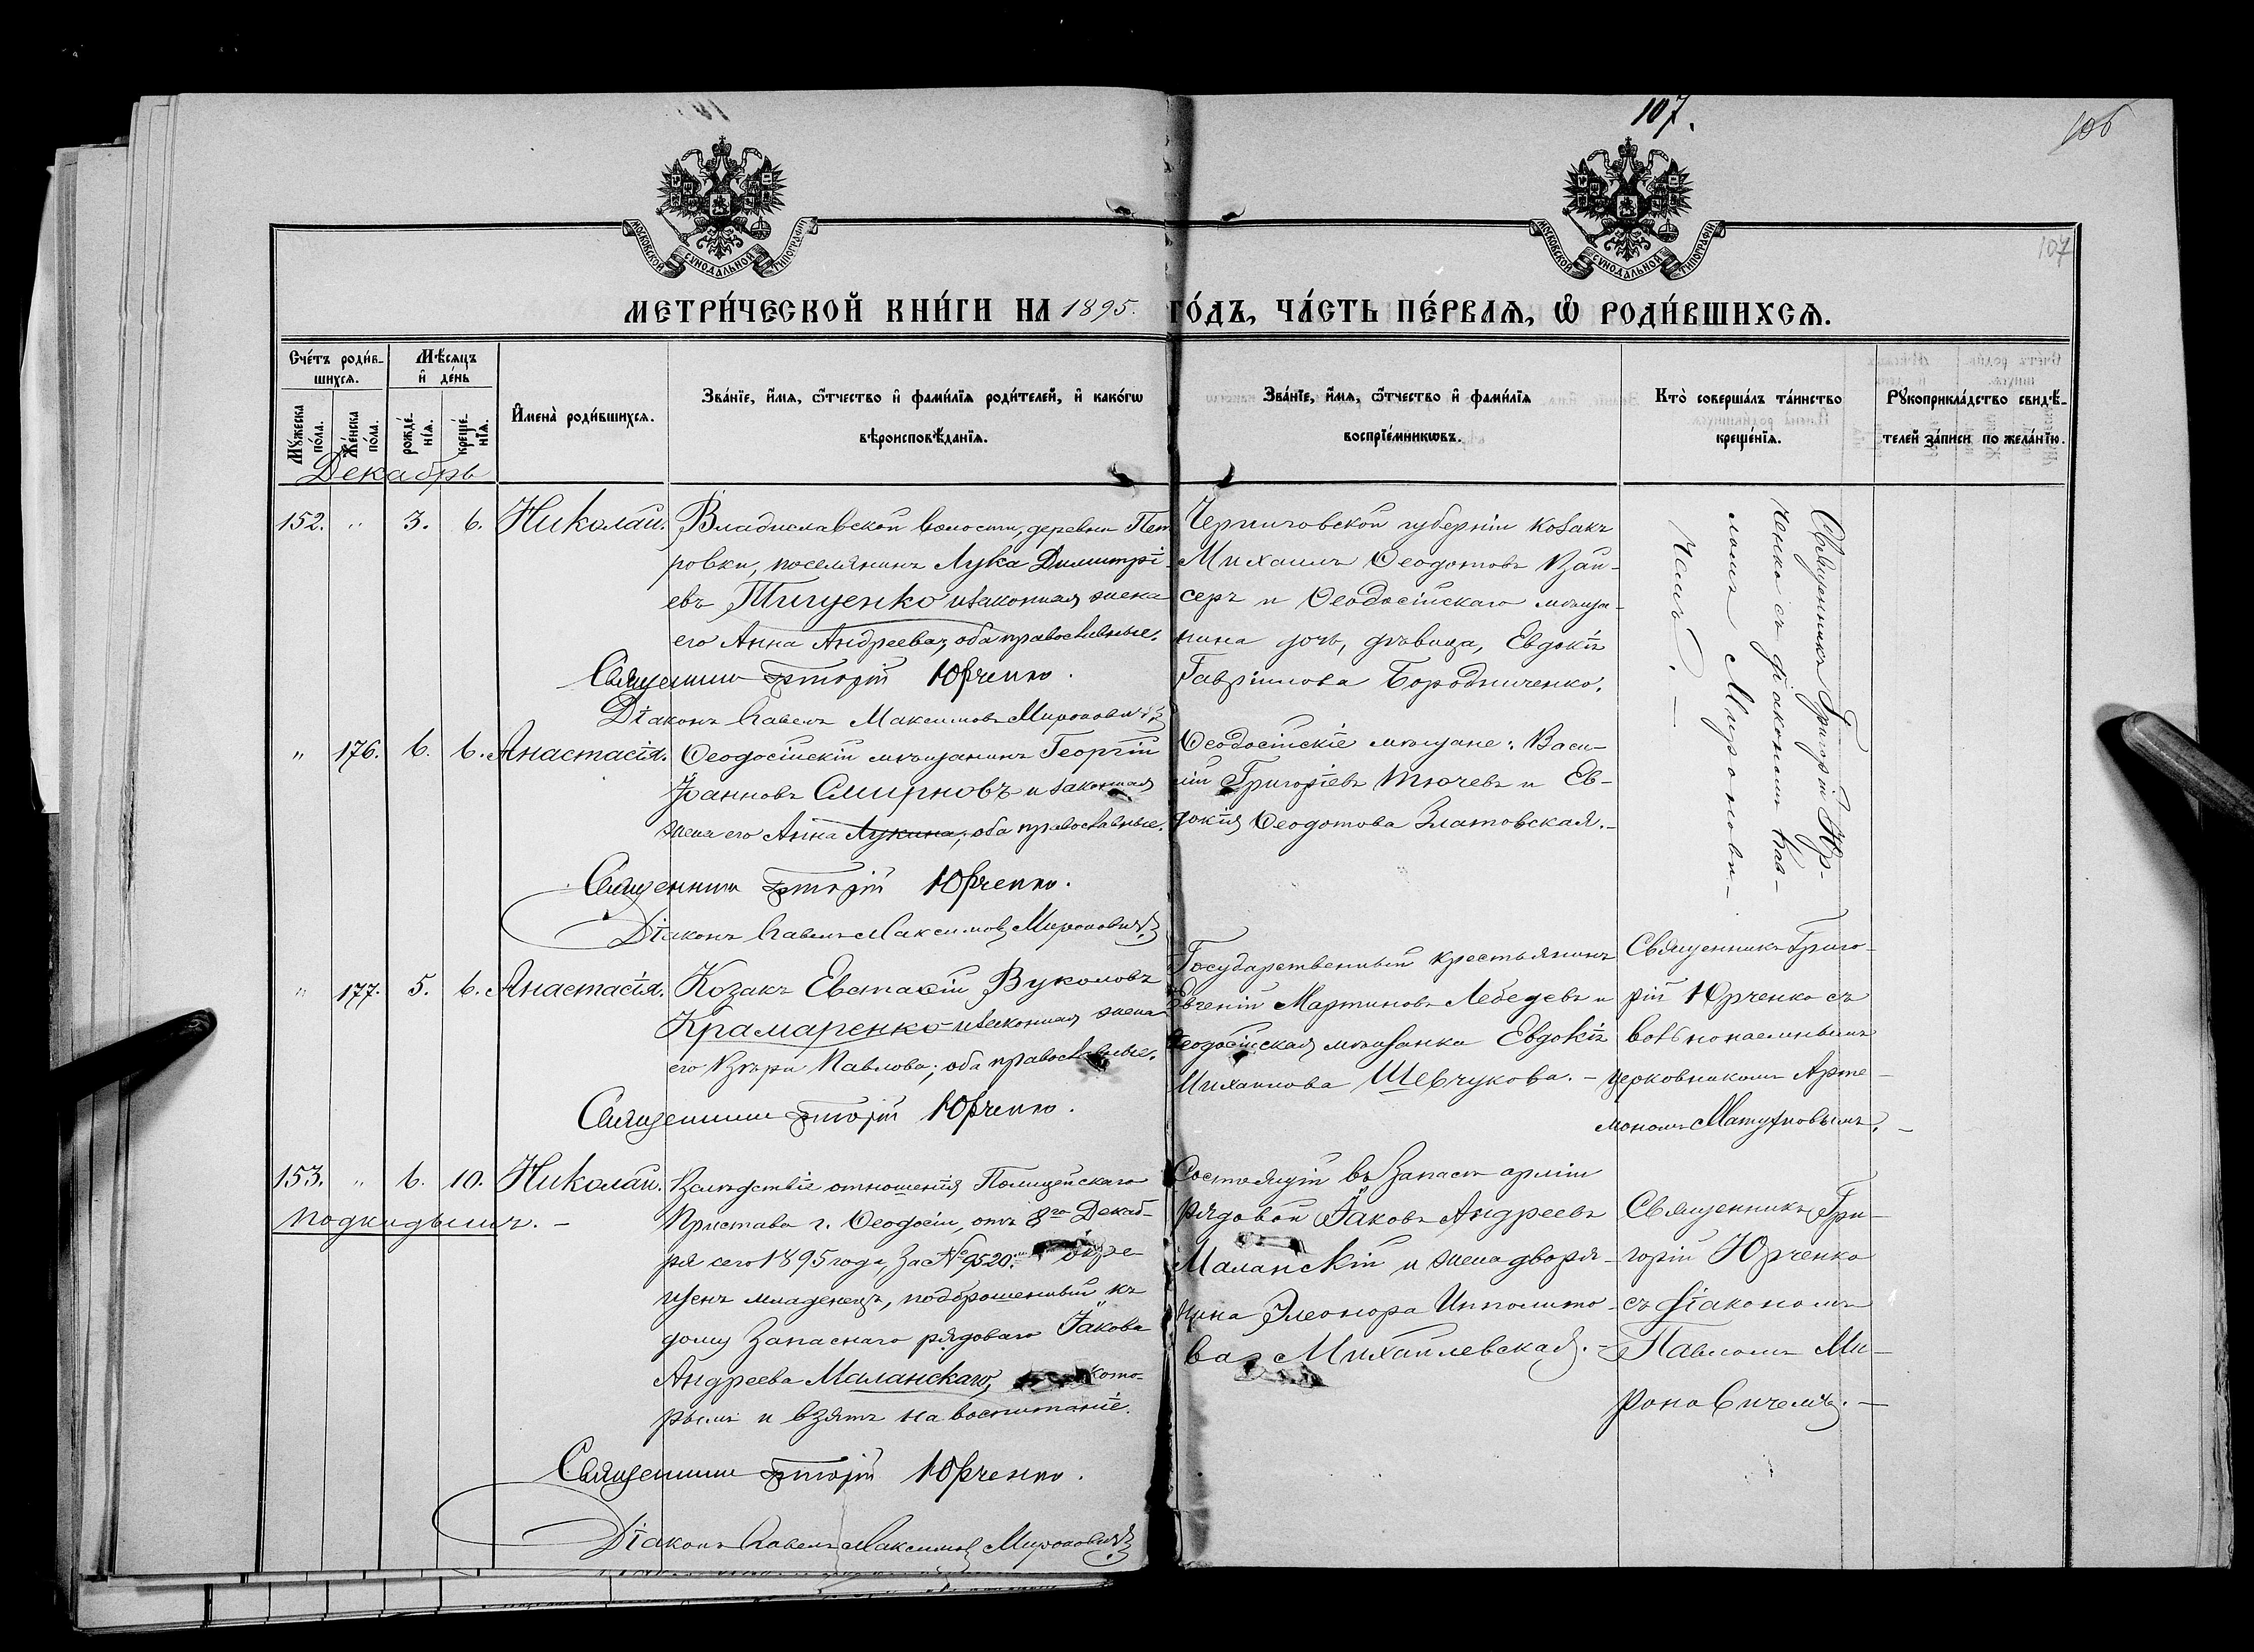 107.
106
107
МОСКОВСКОЙ СУНОДАЛЬНОЙ ТИПОГРАФІИ
МОСКОВСКОЙ СУНОДАЛЬНОЙ ТИПОГРАФІИ
МЕТРИ́ЧЕСКОЙ КНИ́ГИ НА 1895. ГО́ДЪ, ЧА́СТЬ ПЕ́РВАѦ, Ѡ҆ РОДИ́ВШИХСѦ.
Сче́тъ роди́в-
шихсѧ.
Мѣ́сѧцъ
и҆ де́нь
Мꙋ́жеска по́ла.
Же́нска по́ла.
рожде́-
нїѧ.
креще́-
нїѧ.
И҆мена̀ роди́вшихсѧ.
Зва́нїе, и҆́мѧ, ѻ҆́тчество и҆ фами́лїѧ роди́телей, и҆ како́гѡ
вѣроисповѣ́данїѧ.
Зва́нїе, и҆́мѧ, ѻ҆́тчество и҆ фами́лїѧ
воспрїе́мникѡвъ.
Кто̀ соверша́лъ та́инство
креще́нїѧ.
Рꙋкоприкла́дство свидѣ́-
телей за́писи по жела́нїю.
Декабрь
152. " 3. 6. Николай.
Владиславской волости, деревни Пет
ровки, поселянинъ Лука Димитрі-
евъ Тищенко и законная жена
его Анна Андреева, оба православные.
Священникъ Григорій Юрченко.
Діаконъ Павелъ Максимовъ Мироновичъ
Черниговской губерніи козакъ
Михаилъ Ѳеодотовъ Кай-
серъ и Ѳеодосійскаго мѣща-
нина дочь, дѣвица, Евдокія
Гавріилова Бородниченко.
Священникъ Григорій Юр-
ченко съ діакономъ Пав-
ломъ Миронови-
чемъ. —
" 176. 6. 6. Анастасія.
Ѳеодосійскій мѣщанинъ Георгій
Іоанновъ Смирновъ и законная
жена его Анна Лукина, оба православные.
Священникъ Григорій Юрченко.
Діаконъ Павелъ Максимовъ Мироновичъ
Ѳеодосійскіе мѣщане: Васи-
лій Григоріевъ Тючевъ и Ев-
докія Ѳеодотова Златовская. —
" 177. 5. 6. Анастасія.
Козакъ Евстасій Вуколовъ
Крамаренко и законная жена
его Вѣра Павлова; оба православные.
Священникъ Григорій Юрченко.
Государственный крестьянинъ
Евгеній Мартиновъ Лебедевъ и
Ѳеодосійская мѣщанка Евдокія
Михаилова Шевчукова. —
Священникъ Григо-
рій Юрченко съ
вольнонаемнымъ
церковникомъ Арте-
мономъ
153. " 6. 10. Николай.
подкидышъ. —
Вслѣдствіе отношенія Полицейскаго
Пристава г. Ѳеодосіи, отъ 8го Декаб-
ря сего 1895 года, за № 9520. окре-
щенъ младенецъ, подброшенный къ
дому запаснаго рядоваго Іакова
Андреева Маланскаго, кото-
рымъ и взятъ на воспитаніе.
Священникъ Григорій Юрченко.
Діаконъ Павелъ Максимовъ Мироновичъ
Состоящій въ запасѣ арміи
рядовой Іаковъ Андреевъ
Маланскій и жена дворя-
нина Элеонора Ипполито-
ва Михайлевская. —
Священникъ Гри-
горій Юрченко
съ діакономъ
Павломъ Ми-
роновичемъ. —